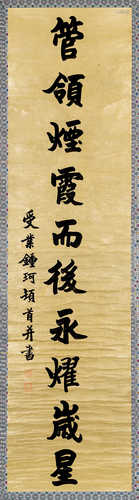 管領煙霞而後永燿嵗星
受業鍾珂頓首并書